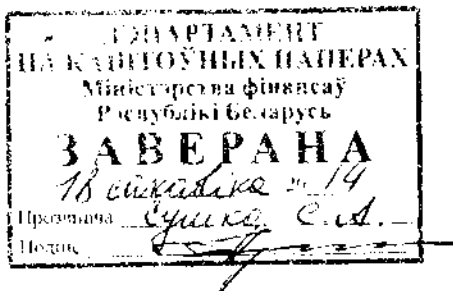 ДЭПАРТАМЕНТ
ПА КАШТОЎНЫХ ПАПЕРАХ
Міністэрства фінансаў
Рэспублікі Беларусь
ЗАВЕРАНА
18 14
Прозвішча Сушко С.А.
Подпіс